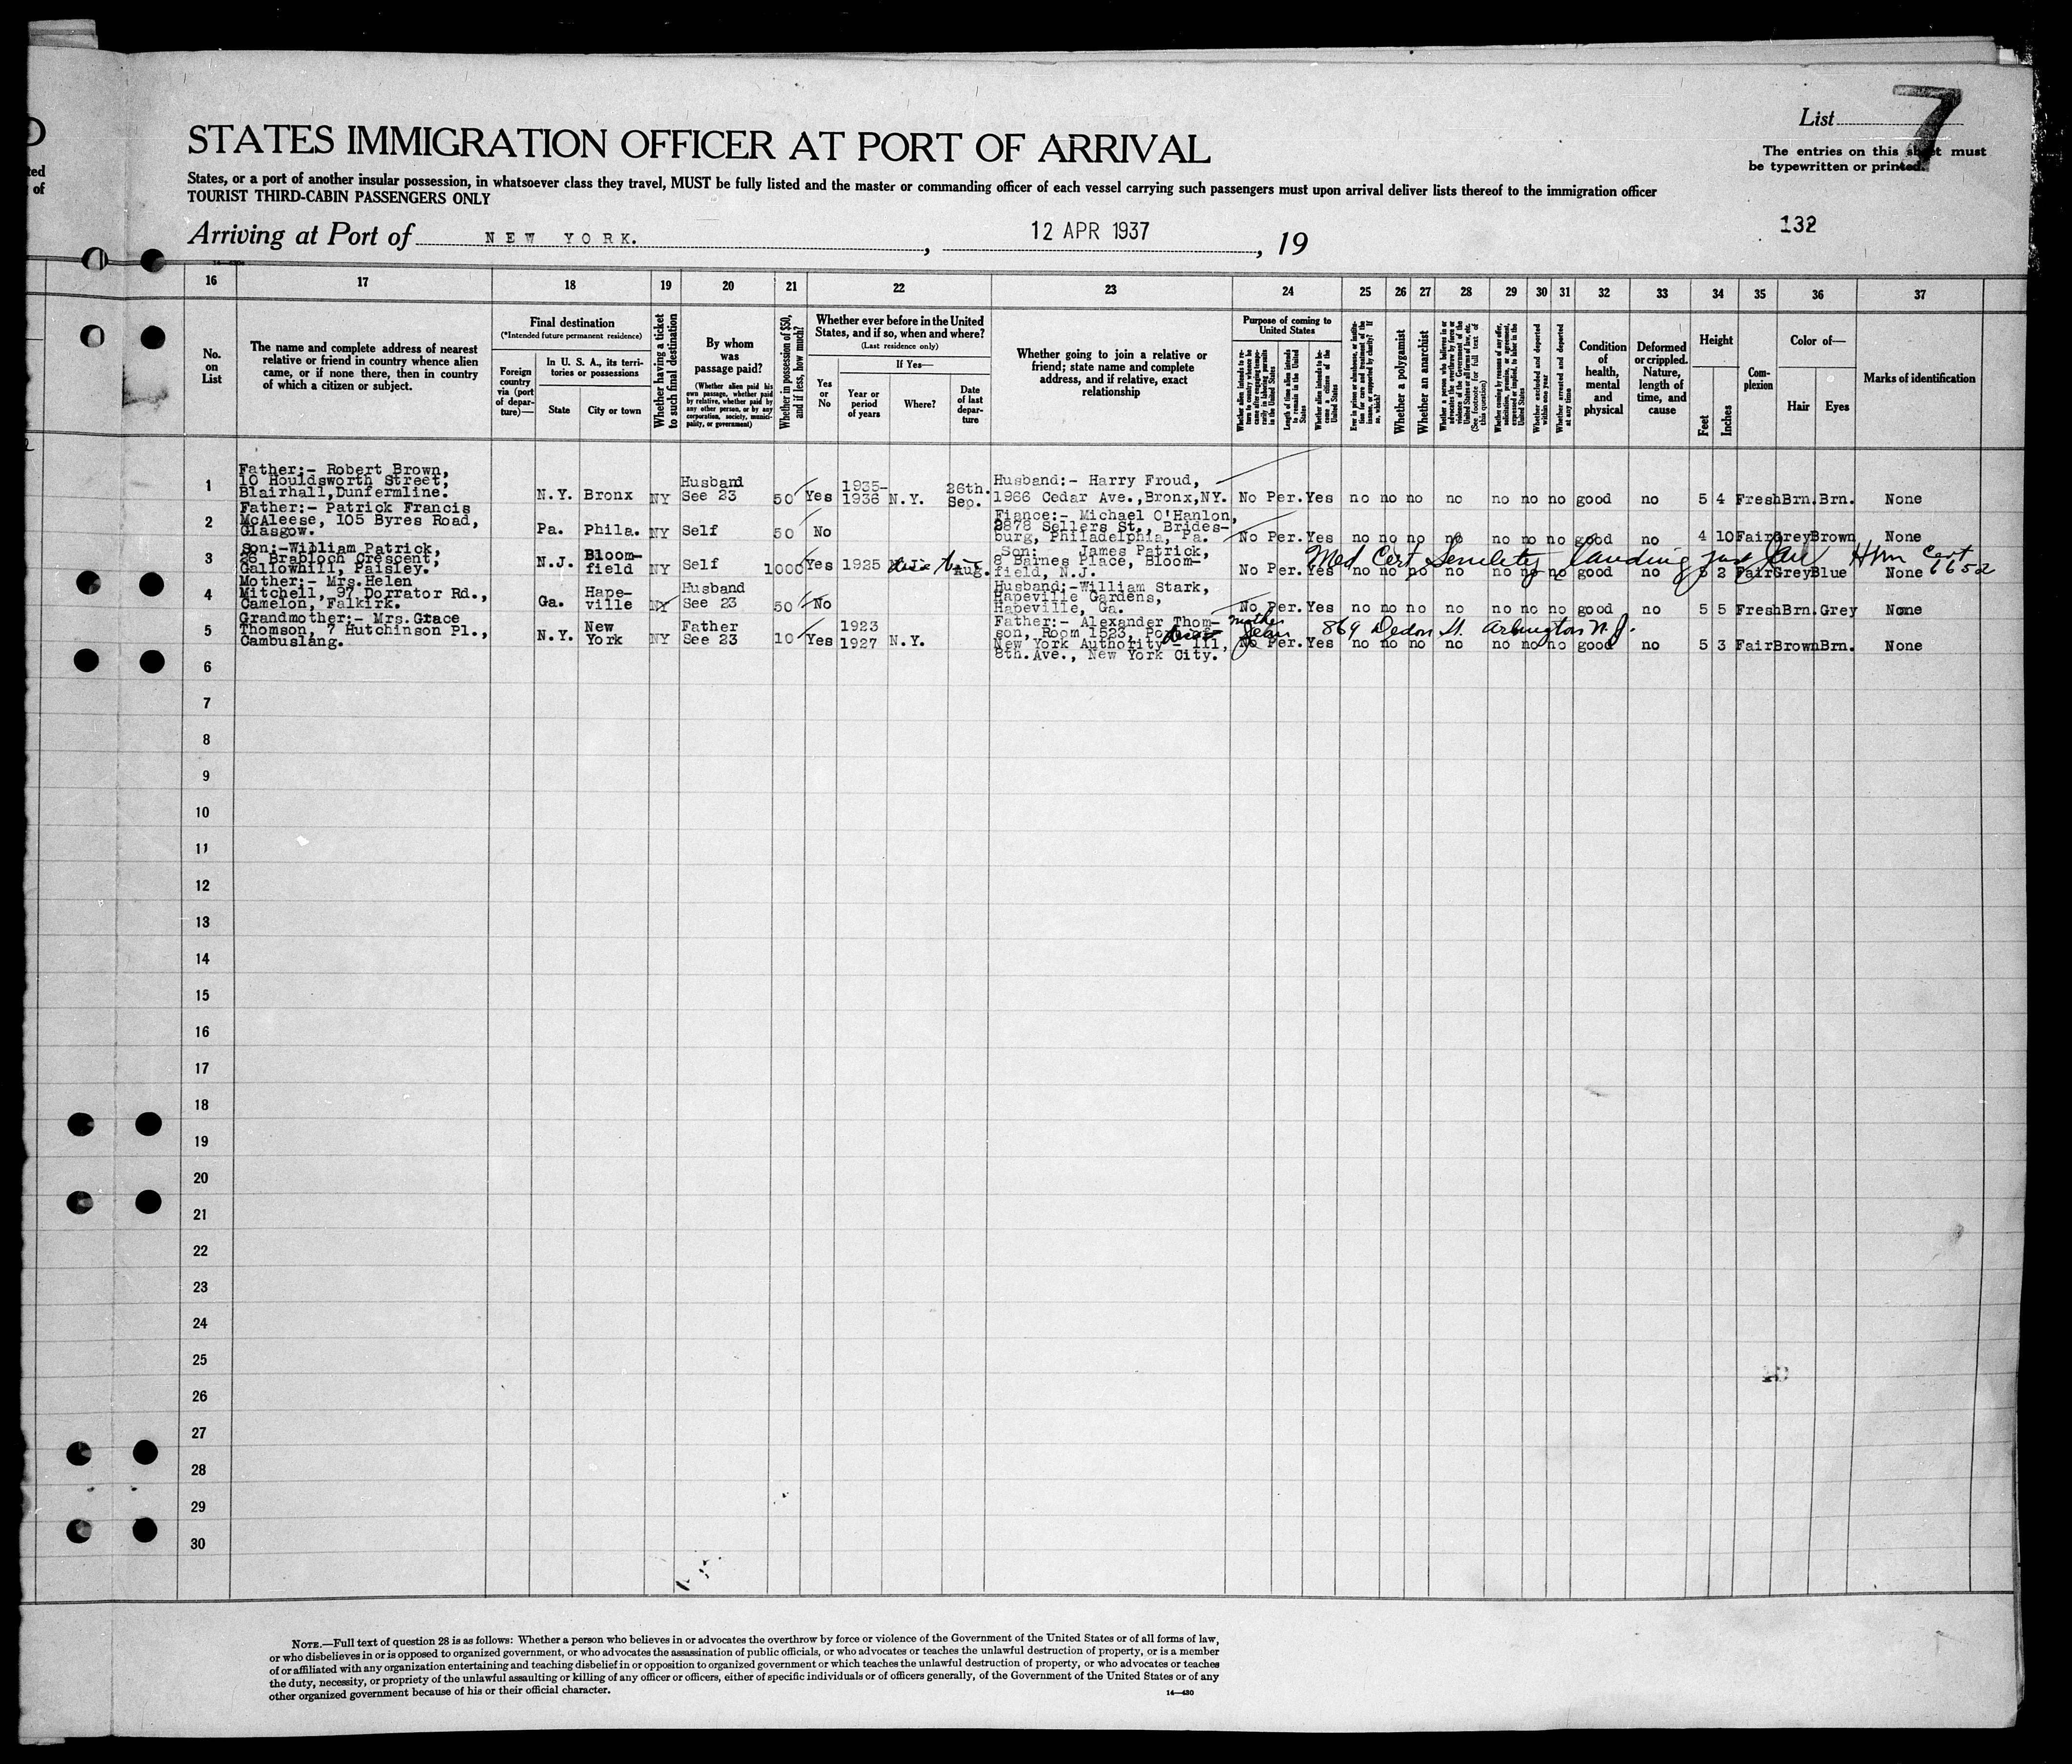 List 7
The entries on this sheet must
be typewritten or printed.
132
STATES IMMIGRATION OFFICER AT PORT OF ARRIVAL
States, or a port of another insular possession, in whatsoever class they travel, MUST be fully listed and the master or commanding officer of each vessel carrying such passengers must upon arrival deliver lists thereof to the immigration officer
TOURIST THIRD-CABIN PASSENGERS ONLY
Arriving at Port of NEW YORK. , 12 APR 1937 , 19
16 17 18 19 20 21 22 23 24 25 26 27 28 29 30 31 32 33 34 35 36 37
No. on List
The name and complete address of nearest
relative or friend in country whence alien
came, or if none there, then in country
of which a citizen or subject.
Final destination
(*Intended future permanent residence)
Foreign country via (port of departure)—
In U. S. A., its territories or possessions
State
City or town
Whether having a ticket to such final destination
By whom was passage paid?
(Whether alien paid his own passage, whether paid by relative, whether paid by any other person, or by any corporation, society, municipality, or government)
Whether in possession of $50, and if less, how much?
Whether ever before in the United States, and if so, when and where?
(Last residence only)
If Yes—
Yes or No
Year or period of years
Where?
Date of last departure
Whether going to join a relative or
friend; state name and complete
address, and if relative, exact
relationship
Purpose of coming to United States
Length of time alien intends to remain in the United States
Whether alien intends to become a citizen of the United States
Whether a polygamist
Whether an anarchist
Whether excluded and deported within one year
Whether arrested and deported at any time
Condition of health, mental and physical
Deformed or crippled. Nature, length of time, and cause
Height
Feet
Inches
Complexion
Color of—
Hair
Eyes
Marks of identification
1 Father:- Robert Brown,
10 Houldsworth Street,
Blairhall,Dunfermline.
N.Y. Bronx NY Husband See 23 50 Yes 1935-1936 N.Y. 26th. Sep.
Husband:- Harry Froud,
1966 Cedar Ave.,Bronx,NY.
No Per. Yes no no no no no no no good no 5 4 Fresh Brn. Brn. None
2 Father:- Patrick Francis
McAleese, 105 Byres Road,
Glasgow.
Pa. Phila. NY Self 50 No
Fiance:- Michael O'Hanlon,
2878 Sellers St., Brides-
burg, Philadelphia, Pa.
No Per. Yes no no no no no no no good no 4 10 Fair Grey Brown None
3 Son:-William Patrick,
26 Brabloch Crescent,
Gallowhill, Paisley.
N.J. Bloom-field NY Self 1000 Yes 1925 Aug.
Son: James Patrick,
8 Barnes Place, Bloom-
field, N.J.
Med Cert Senility Landing
Cert 6652
No Per. Yes no no no no no no no good no 5 2 Fair Grey Blue None
4 Mother:- Mrs.Helen
Mitchell, 97 Dorrator Rd.,
Camelon, Falkirk.
Ga. Hape-ville NY Husband See 23 50 No
Husband:-William Stark,
Hapeville Gardens,
Hapeville, Ga.
No Per. Yes no no no no no no no good no 5 5 Fresh Brn. Grey None
5 Grandmother:- Mrs.Grace
Thomson, 7 Hutchinson Pl.,
Cambuslang.
N.Y. New York NY Father See 23 10 Yes 1923 1927 N.Y.
Father:- Alexander Thom-
son, Room 1523, Port of
New York Authority - 111,
8th.Ave., New York City.
mother Jean 869 St. Arlington N.J.
No Per. Yes no no no no no no no good no 5 3 Fair Brown Brn. None
6
7
8
9
10
11
12
13
14
15
16
17
18
19
20
21
22
23
24
25
26
27
28
29
30
NOTE.—Full text of question 28 is as follows: Whether a person who believes in or advocates the overthrow by force or violence of the Government of the United States or of all forms of law,
or who disbelieves in or is opposed to organized government, or who advocates the assassination of public officials, or who advocates or teaches the unlawful destruction of property, or is a member
of or affiliated with any organization entertaining and teaching disbelief in or opposition to organized government or which teaches the unlawful destruction of property, or who advocates or teaches
the duty, necessity, or propriety of the unlawful assaulting or killing of any officer or officers, either of specific individuals or of officers generally, of the Government of the United States or of any
other organized government because of his or their official character.
14—430